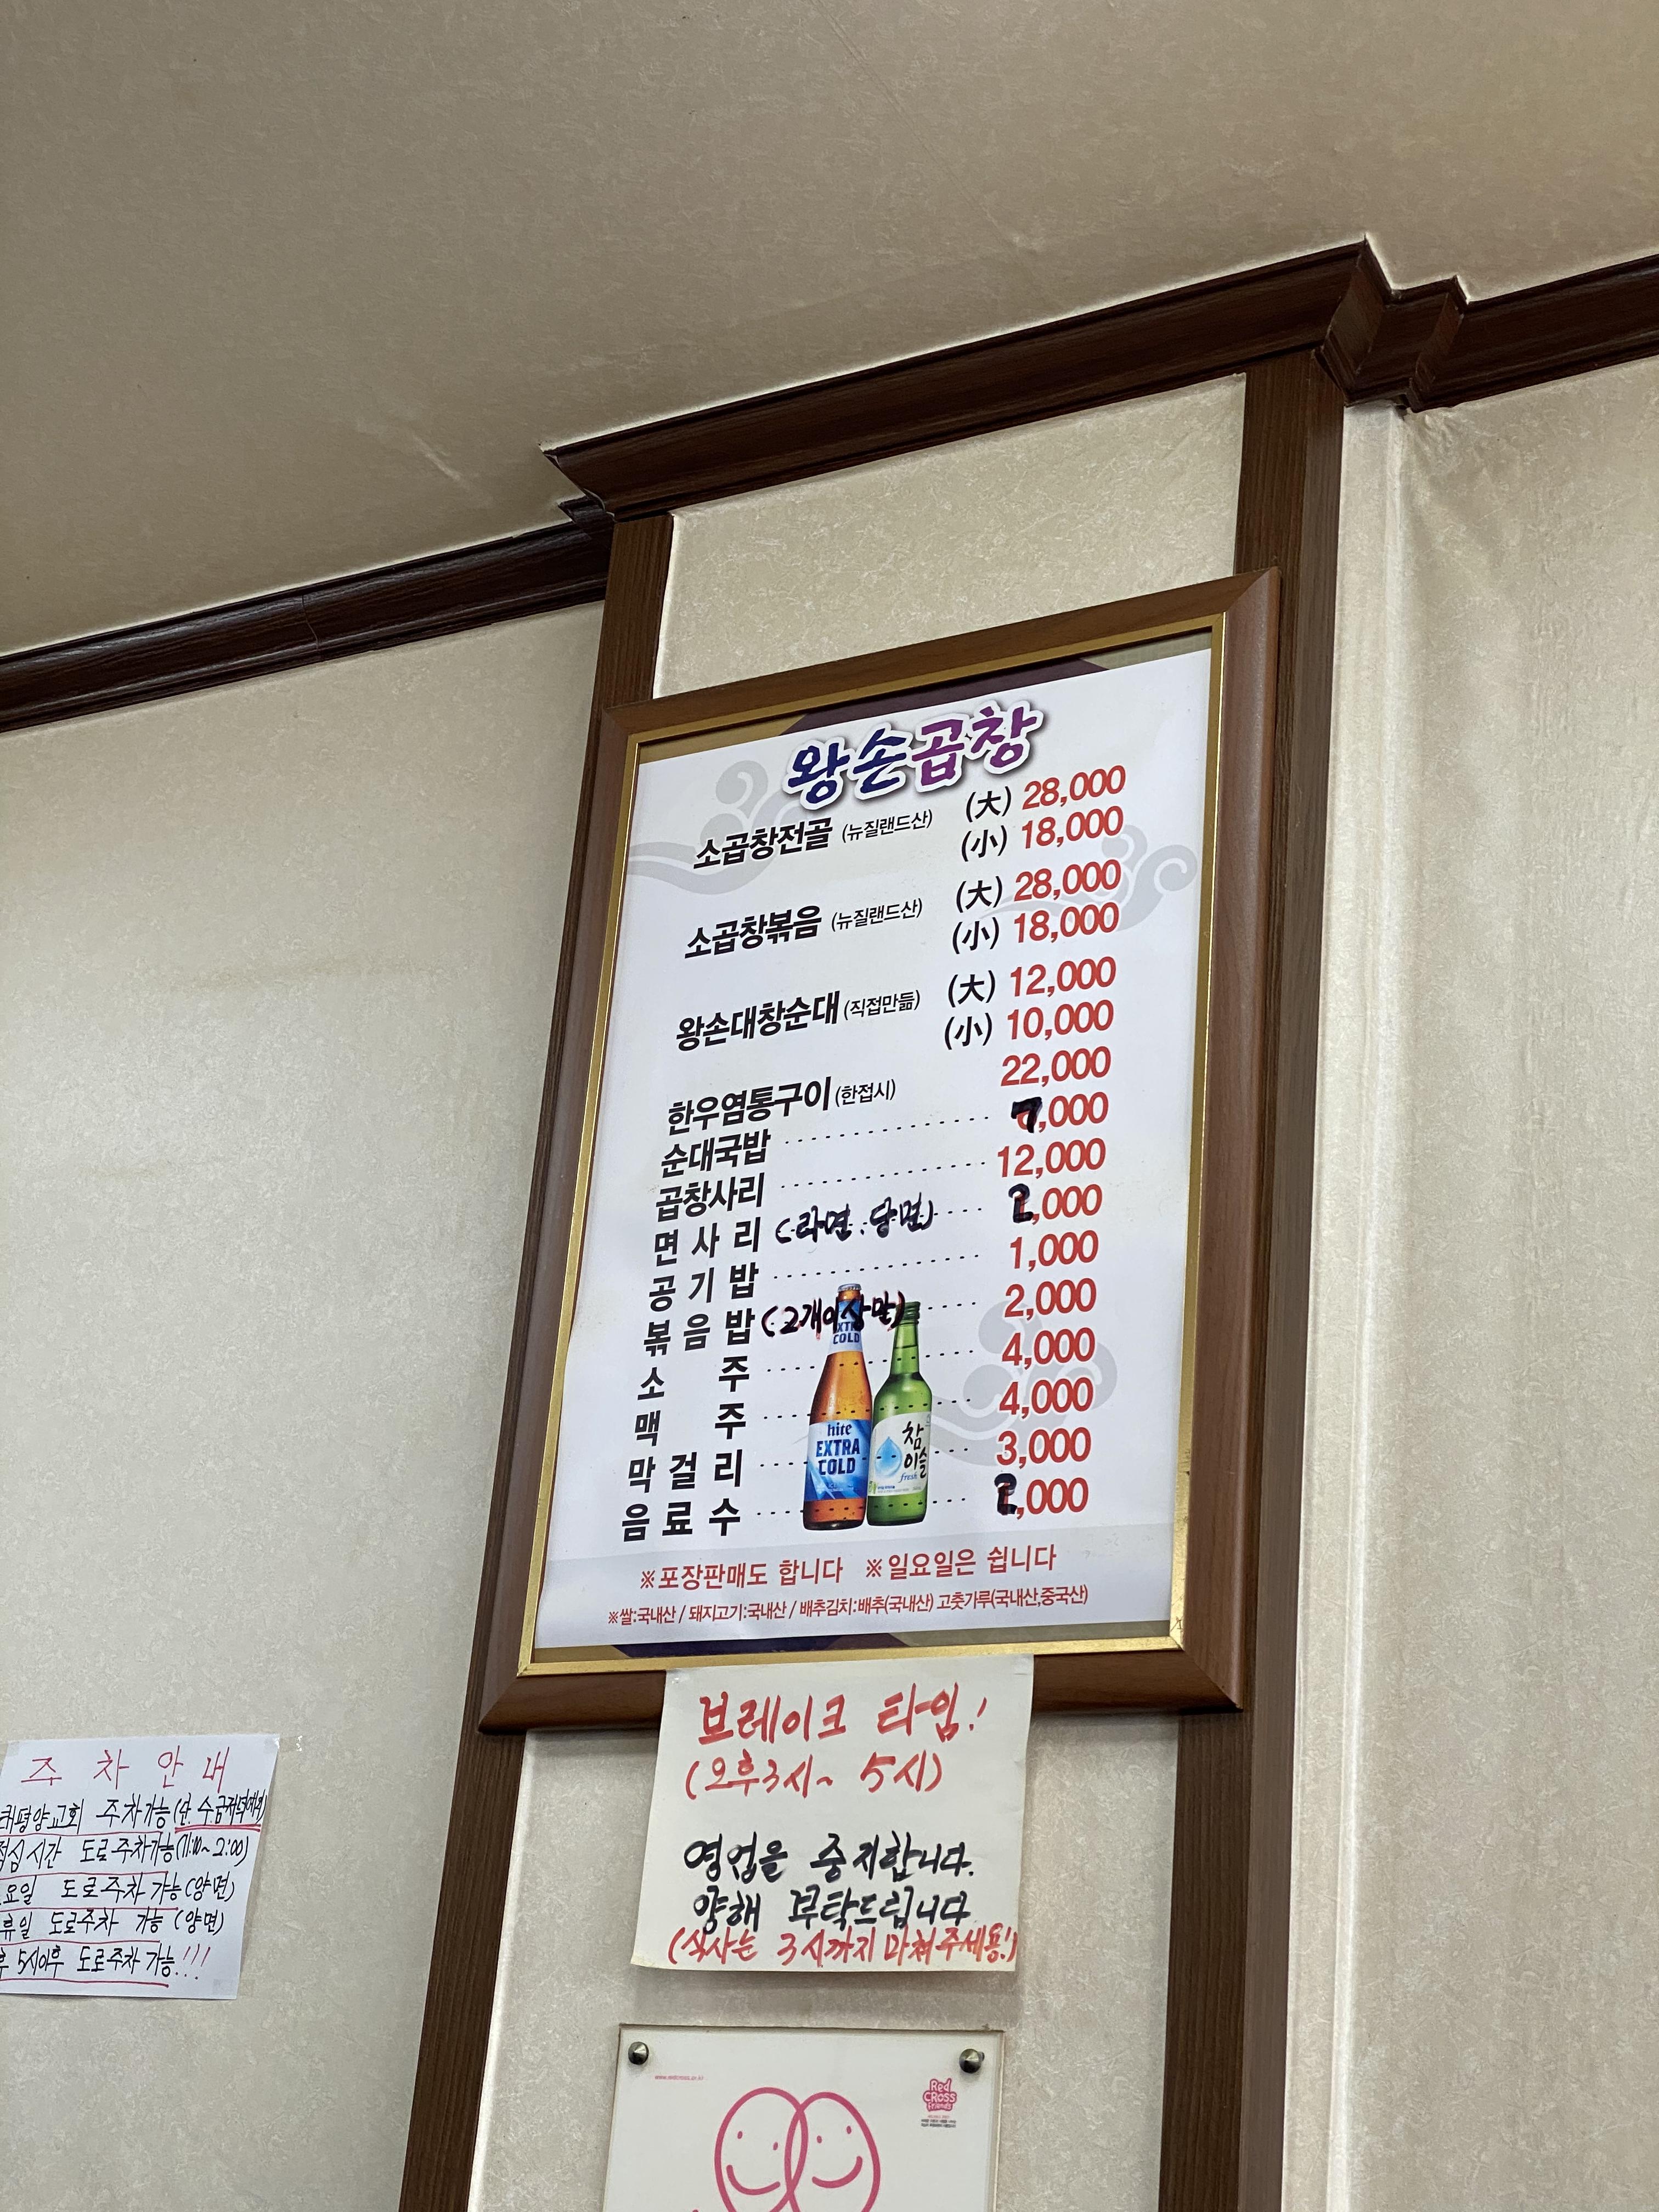 왕손곱창
소곱창전골 (뉴질랜드산) (大) 28,000
(小) 18,000
소곱창볶음 (뉴질랜드산) (大) 28,000
(小) 18,000
왕손대창순대 (직접만듦) (大) 12,000
(小) 10,000
한우염통구이 (한접시) 22,000
순대국밥 7,000
곱창사리 12,000
면사리 (라면.당면) 2,000
공기밥 1,000
볶음밥 (2개이상만) 2,000
소주 4,000
맥주 4,000
막걸리 3,000
음료수 2,000
EXTRA
COLD
hite
EXTRA
COLD
참이슬
fresh
※포장판매도 합니다 ※일요일은 쉽니다
※쌀:국내산 / 돼지고기:국내산 / 배추김치:배추(국내산) 고춧가루(국내산,중국산)
브레이크 타임!
(오후3시~ 5시)
영업을 중지합니다.
양해 부탁드립니다
(식사는 3시까지 마쳐주세용!)
주차안내
태평양교회 주차가능(단.수.금저녁제외)
점심시간 도로주차가능(11:00~2:00)
요일 도로주차 가능(양면)
휴일 도로주차 가능 (양면)
후 5시이후 도로주차가능!!!
www.redcross.or.kr
Red
CRoss
friends